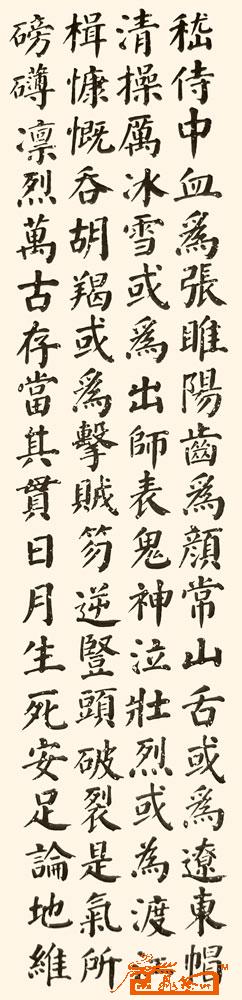 嵇侍中血爲張睢陽齒爲顏常山舌或爲遼東帽
清操厲冰雪或爲出師表鬼神泣壯烈或為渡江
楫慷慨吞胡羯或爲擊賊笏逆豎頭破裂是氣所
磅礡凛烈萬古存當其貫日月生死安足論地維